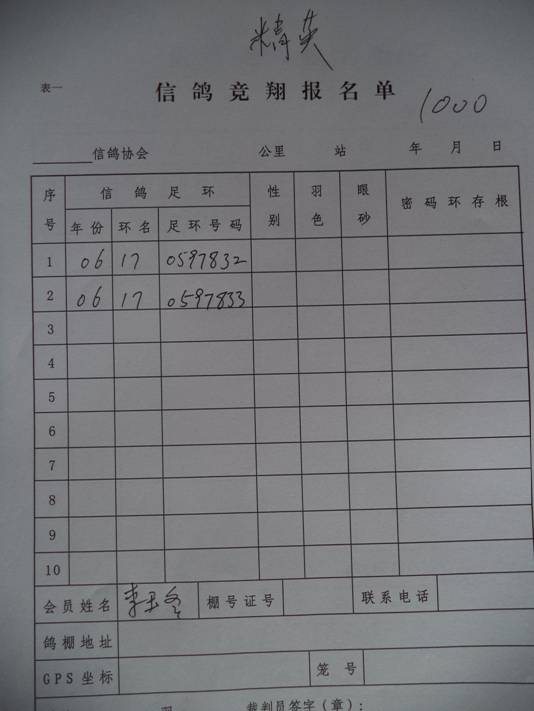 精英
表一
信鸽竞翔报名单
1000
信鸽协会 公里 站 年 月 日
序号 信鸽足环 性别 羽色 眼砂 密码环存根
年份 环名 足环号码
1 06 17 0597832
2 06 17 0597833
3
4
5
6
7
8
9
10
会员姓名 李玉冬 棚号证号 联系电话
鸽棚地址
GPS坐标 笼号
羽 裁判员签字(章):